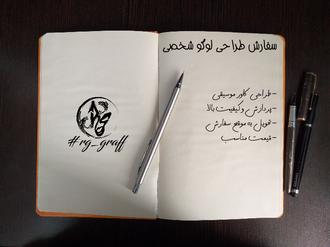 سفارش طراحی لوگو شخصی
-طراحی کاور موسیقی
-پردازش و کیفیت بالا
-تحویل به موقع سفارش
-قیمت مناسب
#rg_graff